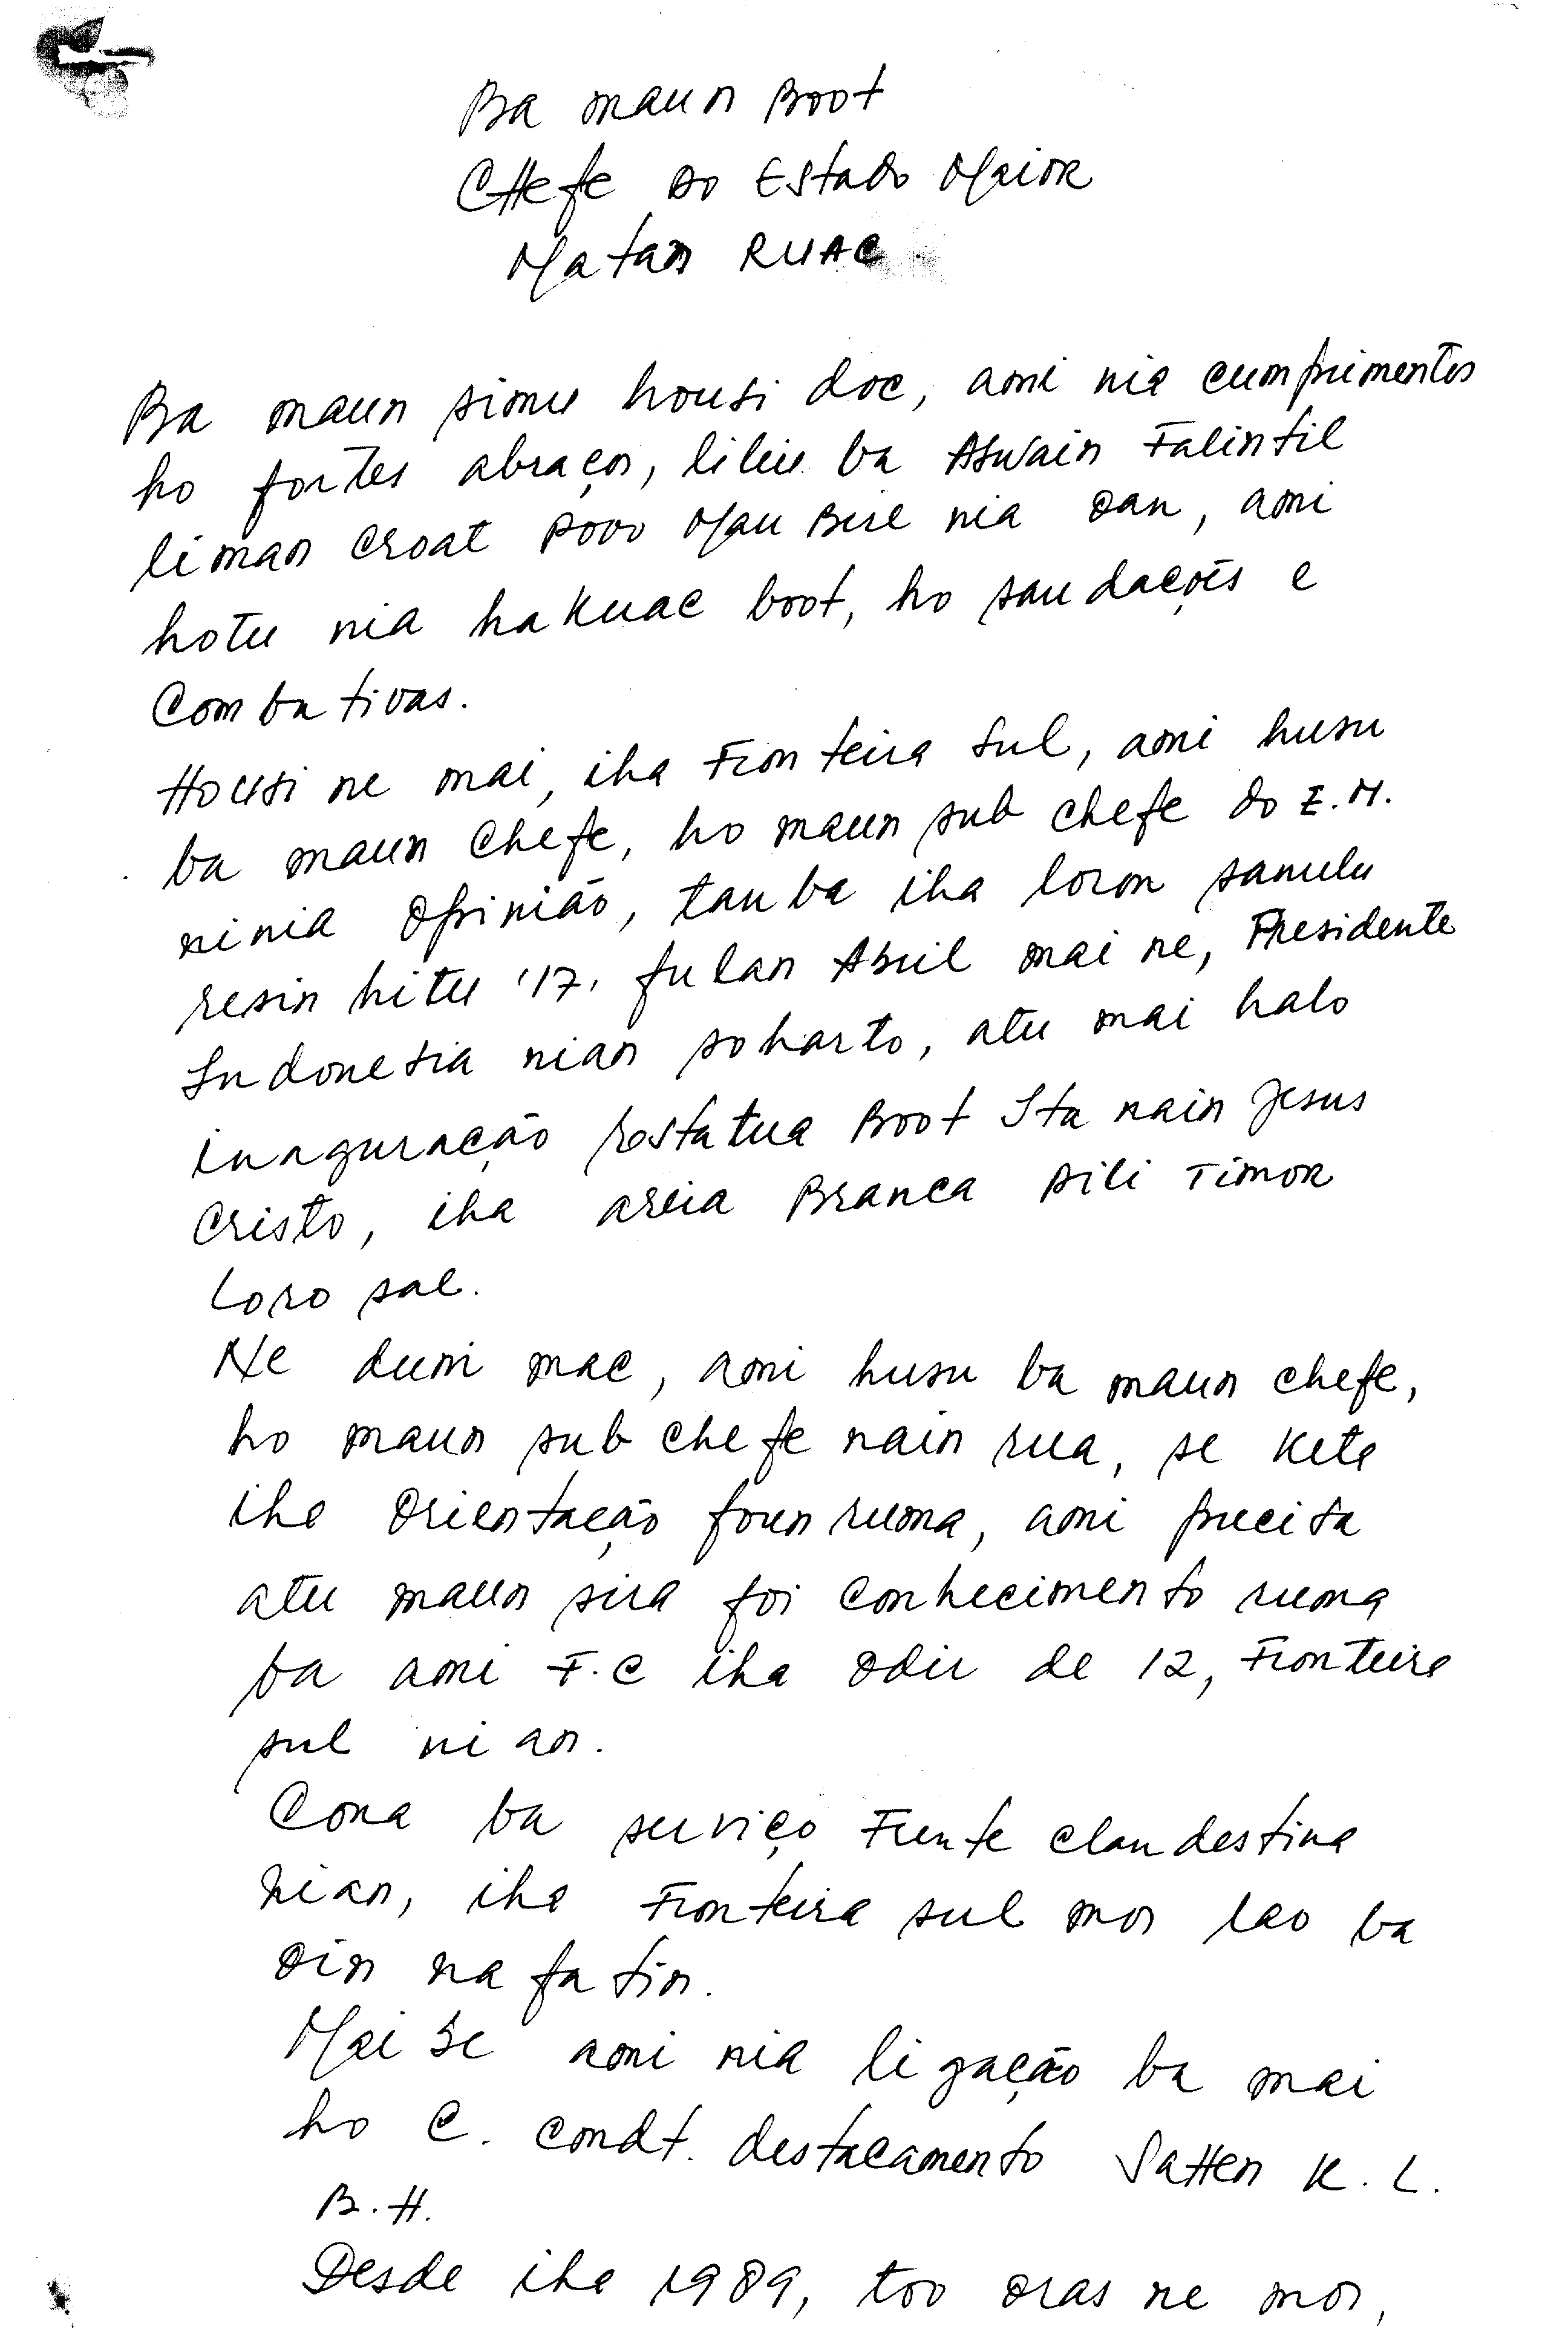 Ba maun Boot
CHefe do Estado Maior
Matan RUAC
Ba maun simu housi doc, ami nia cumprimentos
ho fortes abraços, liliu ba Aswain Falintil
liman croat povo Mau Bere nia oan, ami
hotu nia hakuac boot, ho saudações e
Combativas.
Housi ne mai, iha Fronteira Sul, ami husu
ba maun Chefe, ho maun sub chefe do E.M.
ninia Opinião, tanba iha loron sanulu
resin hitu '17, fulan Abril mai ne, Presidente
Indonesia nian Soharto, atu mai halo
inaguração estatua Boot Ita nain Jesus
Cristo, iha areia Branca Dili Timor
Loro sae.
Ne duni mac, ami husu ba maun chefe,
ho maun sub chefe nain rua, se Kete
iha Orientação foun ruma, ami precisa
atu maun sira foi conhecimento ruma
ba ami F.C iha Odir de 12, Fronteira
sul nian.
Cona ba serviço Frente clandestina
nian, iha Fronteira sul mos lao ba
oin nafatin.
Mai se ami nia ligação ba mai
ho C. Condt. destacamento Satten K. L.
B. H.
Desde iha 1989, too oras ne mos,